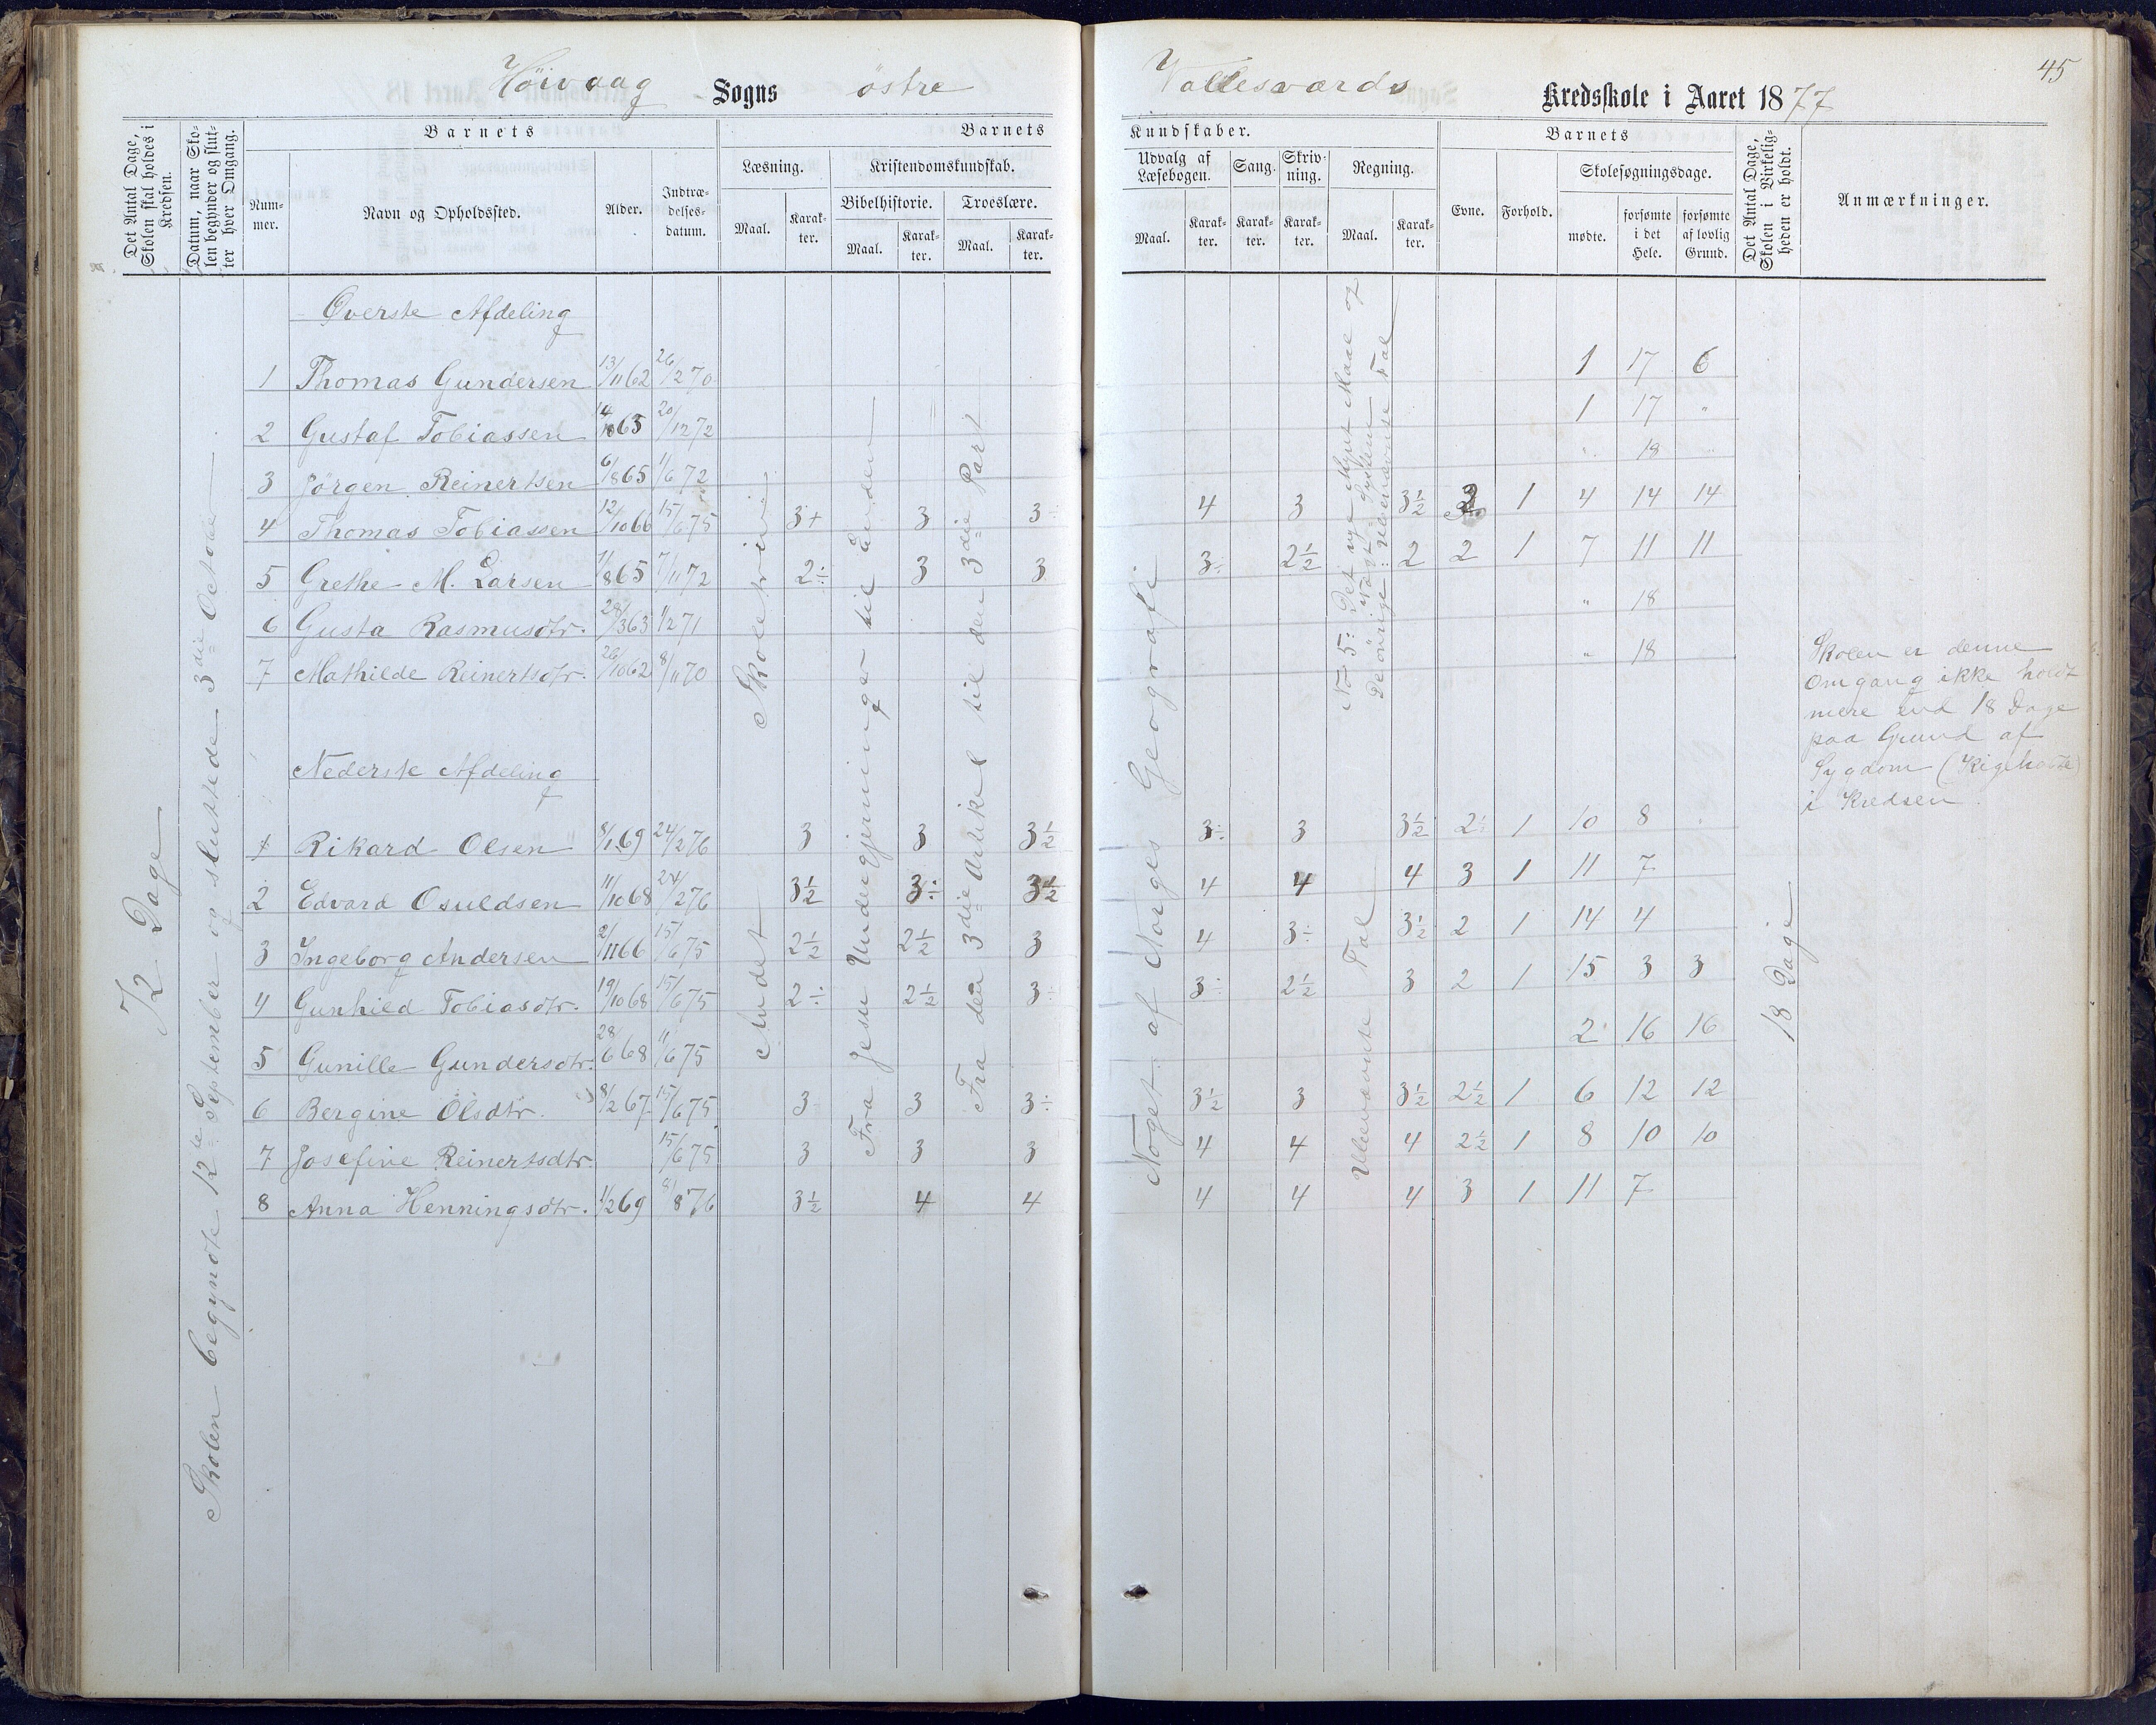 Høivaag Sogns østre Vallesværds Kredsskole i Aaret 1877
45
Det Antal Dage, Skolen skal holdes i Kredsen.
Datum, naar Skolen begynder og slutter hver Omgang.
Barnets
Nummer.
Navn og Opholdssted.
Alder.
Indtrædelsesdatum.
Barnets Kundskaber.
Læsning.
Maal.
Karakter.
Kristendomskundskab.
Bibelhistorie.
Maal.
Karakter.
Troeslære.
Maal.
Karakter.
Udvalg af Læsebogen.
Maal.
Karakter.
Sang.
Karakter.
Skrivning.
Karakter.
Regning.
Maal.
Karakter.
Barnets
Evne.
Forhold.
Skolesøgningsdage.
mødte.
forsømte i det Hele.
forsømte af lovlig Grund.
Det Antal Dage, Skolen i Virkeligheden er holdt.
Anmærkninger.
72 Dage
Skolen begyndte 12te September og sluttede 3die October
Andet Skoletrin
Fra Jesu Undergjerninger til Enden
Fra den 3die Artikel til den 3die Part
Noget af Norges Geografi
No 5: Det nye Mynt Maal og Vægt System
De øvrige: Ubenævnte Tal
Ubenævnte Tal
18 Dage
Øverste Afdeling
1 Thomas Gundersen 13/11 62 26/2 70 1 17 6
2 Gustaf Tobiassen 14/10 63 20/12 72 1 17 "
3 Jørgen Reinertsen 6/8 65 1/6 72 " 18 "
4 Thomas Tobiassen 12/10 66 15/6 75 3+ 3 3÷ 4 3 3½ 1 4 14 14
5 Grethe M. Larsen 1/8 65 7/11 72 2÷ 3 3 3÷ 2½ 2 2 1 7 11 11
6 Gusta Rasmusdtr. 28/3 63 1/2 71 " 18
7 Mathilde Reinertsdtr. 26/10 62 8/11 70 " 18
Nederste Afdeling
1 Rikard Olsen 8/1 69 24/2 76 3 3 3½ 3÷ 3 3½ 2÷ 1 10 8
2 Edvard Osuldsen 11/10 68 24/2 76 3½ 3÷ 3½ 4 4 4 3 1 11 7
3 Ingeborg Andersen 2/11 66 15/6 75 2½ 2½ 3 4 3÷ 3½ 2 1 14 4
4 Gunhild Tobiasdtr. 19/10 68 15/6 75 2÷ 2½ 3÷ 3÷ 2½ 3 2 1 15 3 3
5 Gunille Gundersdtr. 28/6 68 11/6 75 2 16 16
6 Bergine Olsdtr. 8/2 67 15/6 75 3 3 3÷ 3½ 3 3½ 2½ 1 6 12 12
7 Josefine Reinertsdtr. 15/6 75 3 3 3 4 4 4 2½ 1 8 10 10
8 Anna Henningsdtr. 1/2 69 8 76 3½ 4 4 4 4 4 3 1 11 7
Skolen er denne
Omgang ikke holdt
mere end 18 Dage
paa Grund af
Sygdom (Kighoste)
i Kredsen.